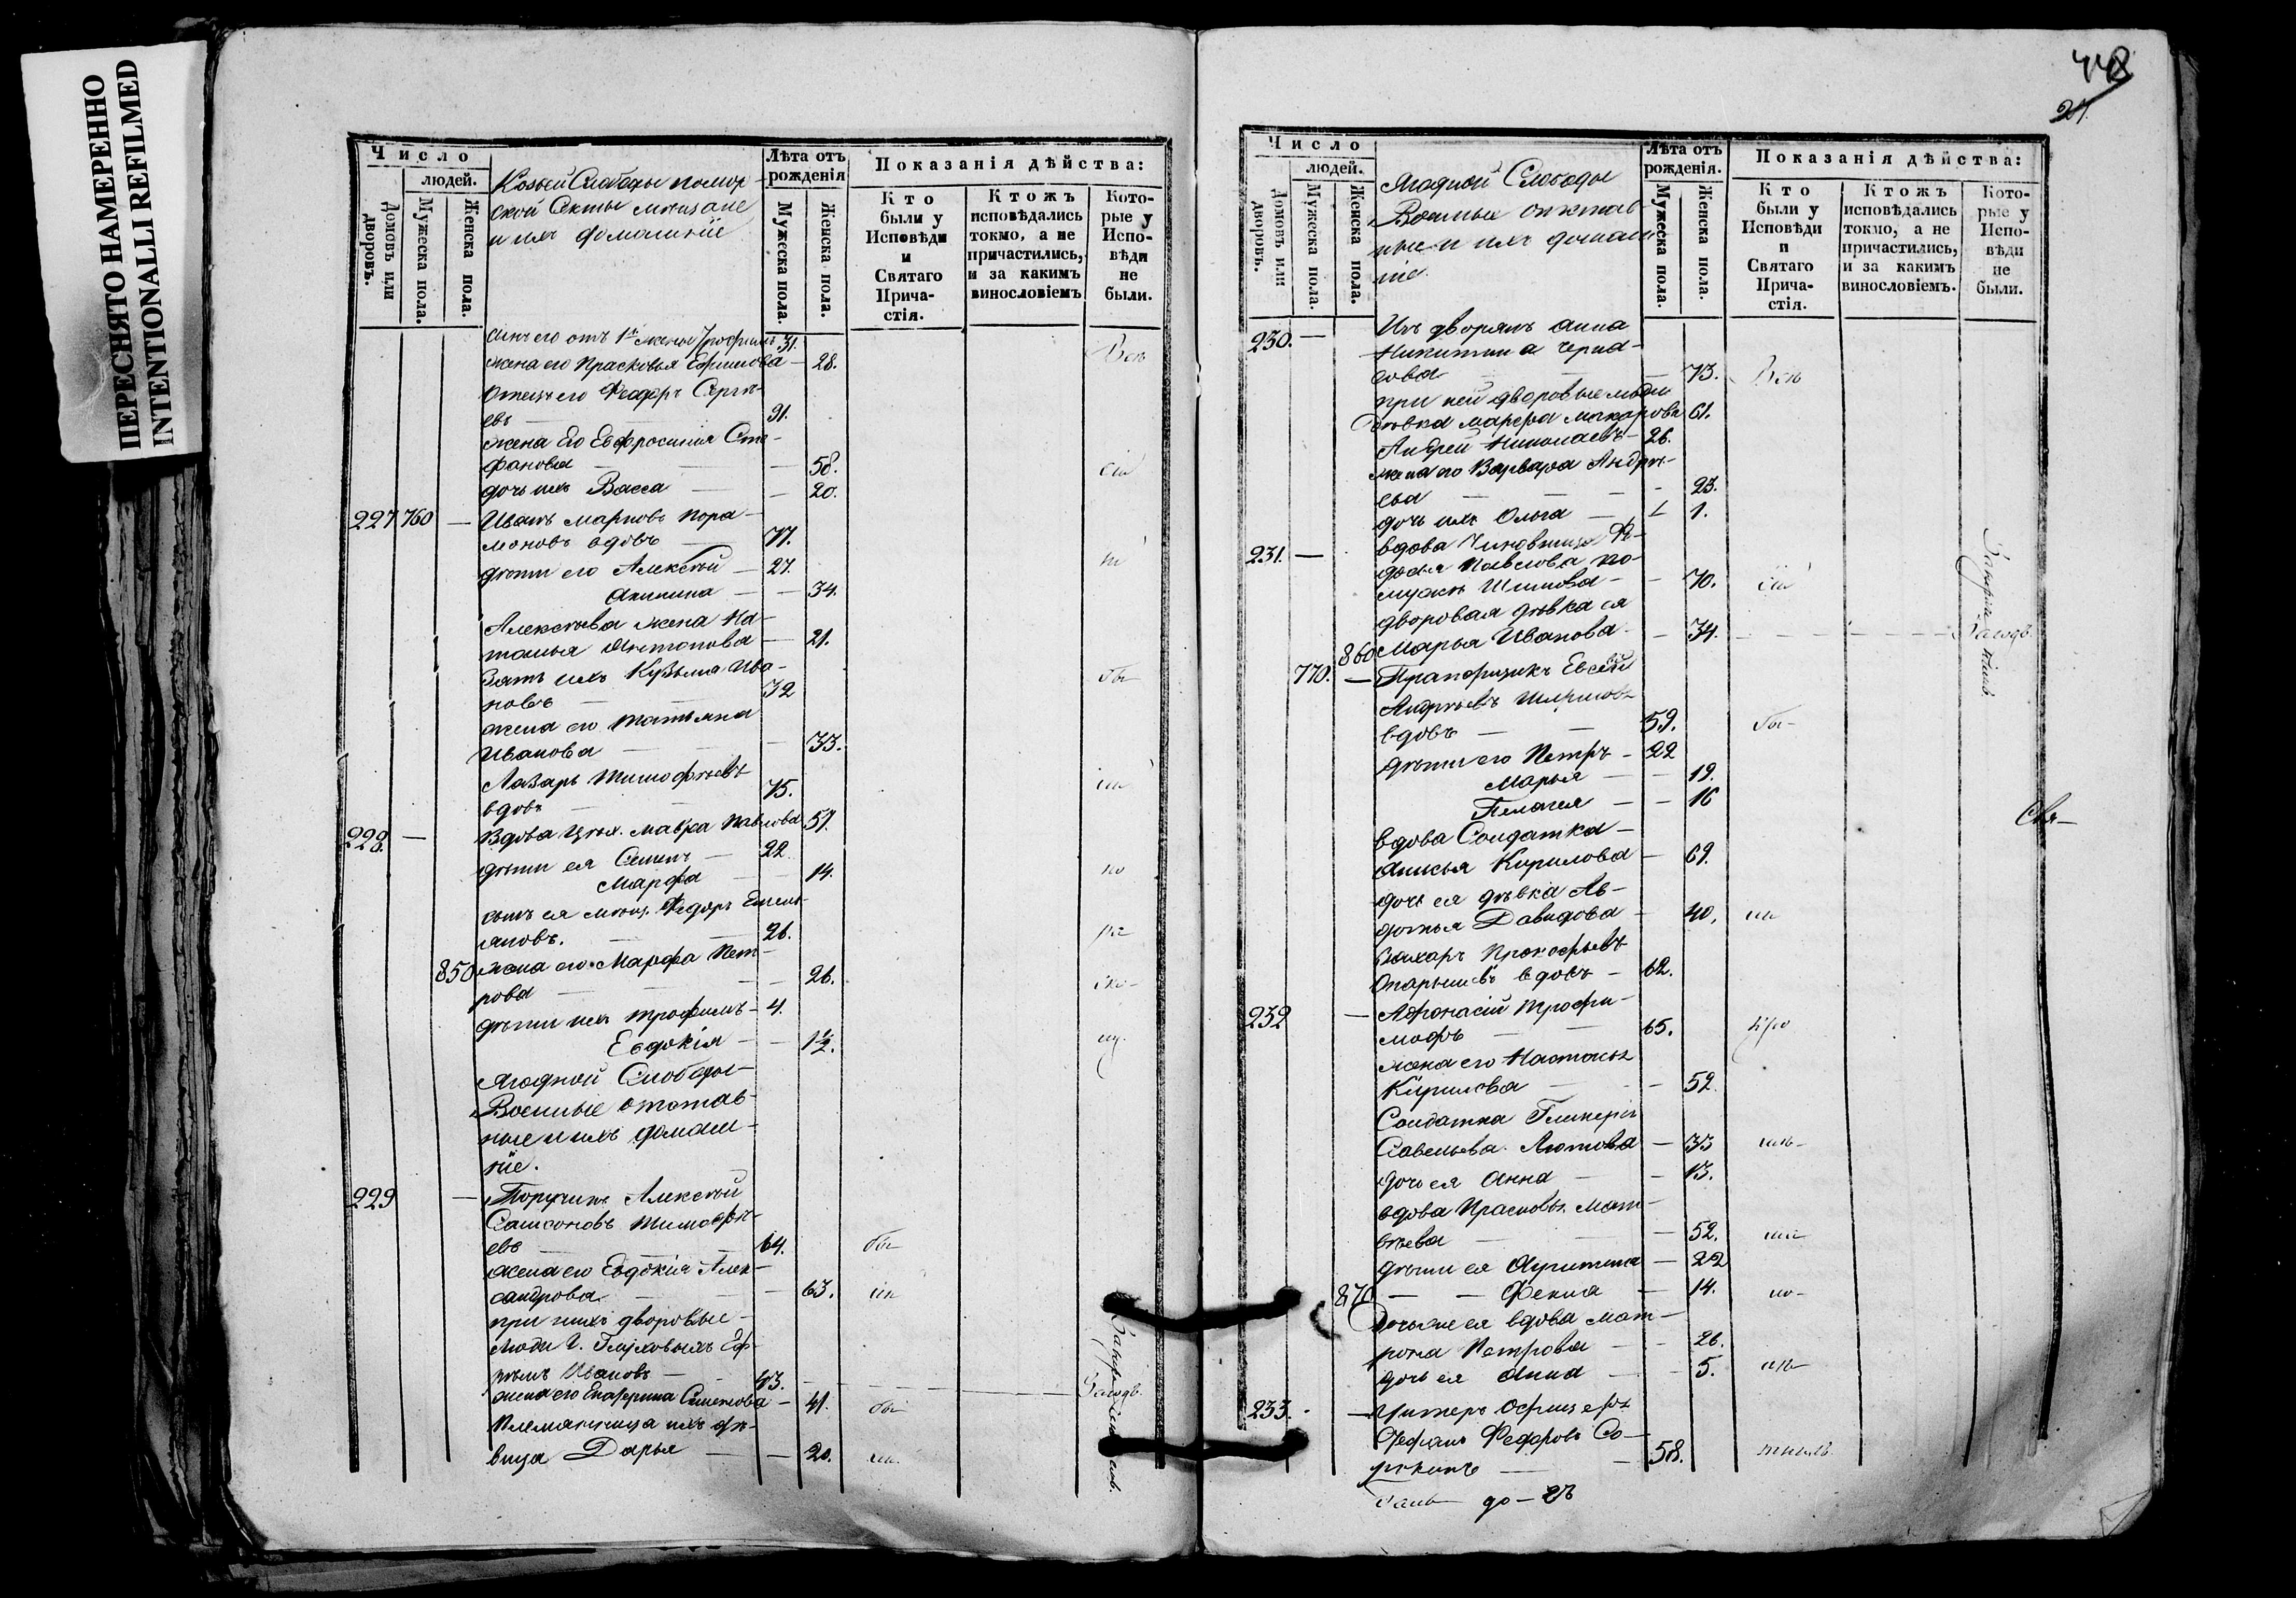 ПЕРЕСНЯТО НАМЕРЕННО
INTENTIONALLI REFILMED
Число
людей.
Домовъ или дворовъ.
Мужеска пола.
Женска пола.
Козьей Слободы помор-
ской Секты мещане
и ихъ домашніе
Лѣта отъ рожденія
Мужеска пола.
Женска пола.
Показанія дѣйства:
Кто были у Исповѣди и Святаго Прича-стія.
Ктожъ исповѣдались токмо, а не причастились, и за какимъ винословіемъ
Кото-рые у Испо-вѣди не были.
сынъ его отъ 1й жены Трофимъ 31.
жена его Прасковья Ефимова — 28.
отецъ его Федоръ Сергѣ-
евъ 91.
жена его Евфросинія Сте-
фанова — 58.
дочь ихъ Васса — 20.
227 760 — Иванъ Марковъ Пара-
моновъ вдовъ — 77.
дѣти его Алексѣй — 27.
Акилина — 34.
Алексѣева жена На-
талья Антонова — 21.
Зять ихъ Кузьма Ива-
новъ — 32
жена его Татьяна
Иванова — 33.
Лазарь Тимофѣевъ
вдовъ 75.
228. — Вдова Мавра Павлова 57.
дѣти ея Семенъ — 22.
Марфа — 14.
сынъ ея мѣщ. Федоръ Емель-
яновъ. — 26.
850 жена его Марфа Пет-
рова — 26.
дѣти ихъ Трофимъ — 4.
Евдокія — 1½.
Ягодной Слободы
Военные отстав-
ные и ихъ домаш-
ніе.
229 — Поручикъ Алексѣй
Самсоновъ Тимофѣ-
евъ — 64. бы
жена его Евдокія Алек-
сандрова — 63.
при нихъ дворовые
люди Г. Глуховыхъ Еф-
ремъ Ивановъ — 43.
жена его Екатерина Семенова — 41. бы
Племянница ихъ дѣ-
вица Дарья — 20.
448
Число
людей.
Домовъ или дворовъ.
Мужеска пола.
Женска пола.
Ягодной Слободы
Военные отстав-
ные и ихъ домаш-
ніе.
Лѣта отъ рожденія.
Мужеска пола.
Женска пола.
Показанія дѣйства:
Кто были у Исповѣди и Святаго Прича-стія.
Ктожъ исповѣдались токмо, а не причастились, и за какимъ винословіемъ.
Кото-рые у Испо-вѣди не были.
230. — Изъ дворянъ Анна
Никитина
73.
при ней дворовые люди
дѣвка Марфа Макарова 61.
Андрей Николаевъ — 26.
жена его Варвара Андрѣ-
ева — 23.
дочь ихъ Ольга — 1.
231. — вдова Чиновница
Павлова по
мужѣ — 70.
дворовая дѣвка ея
860 Марья Иванова — 34.
770. — Прапорщикъ Евсѣй
Андрѣевъ
вдовъ — 59. бы-
дѣти его Петръ — 22
Марья — 19.
Пелагея — 16
вдова Солдатка
Анисья Кирилова — 69.
дочь ея дѣвка Ав-
дотья Давидова — 40.
Захаръ Прокофьевъ
вдовъ — 62.
232 — Афонасій Трофи-
мофъ — 65.
жена его Настасья
Кирилова — 52
Солдатка Гликерія
Савельева — 33
дочь ея Анна — 13.
вдова Прасковья Мат-
вѣева — 52.
дѣти ея — 22
870 — Фекла — 14.
Дочь же ея вдова Мат-
рона Петрова — 26.
дочь ея Анна — 5.
233. — Унтеръ Офицеръ
Федоровъ Со-
58.